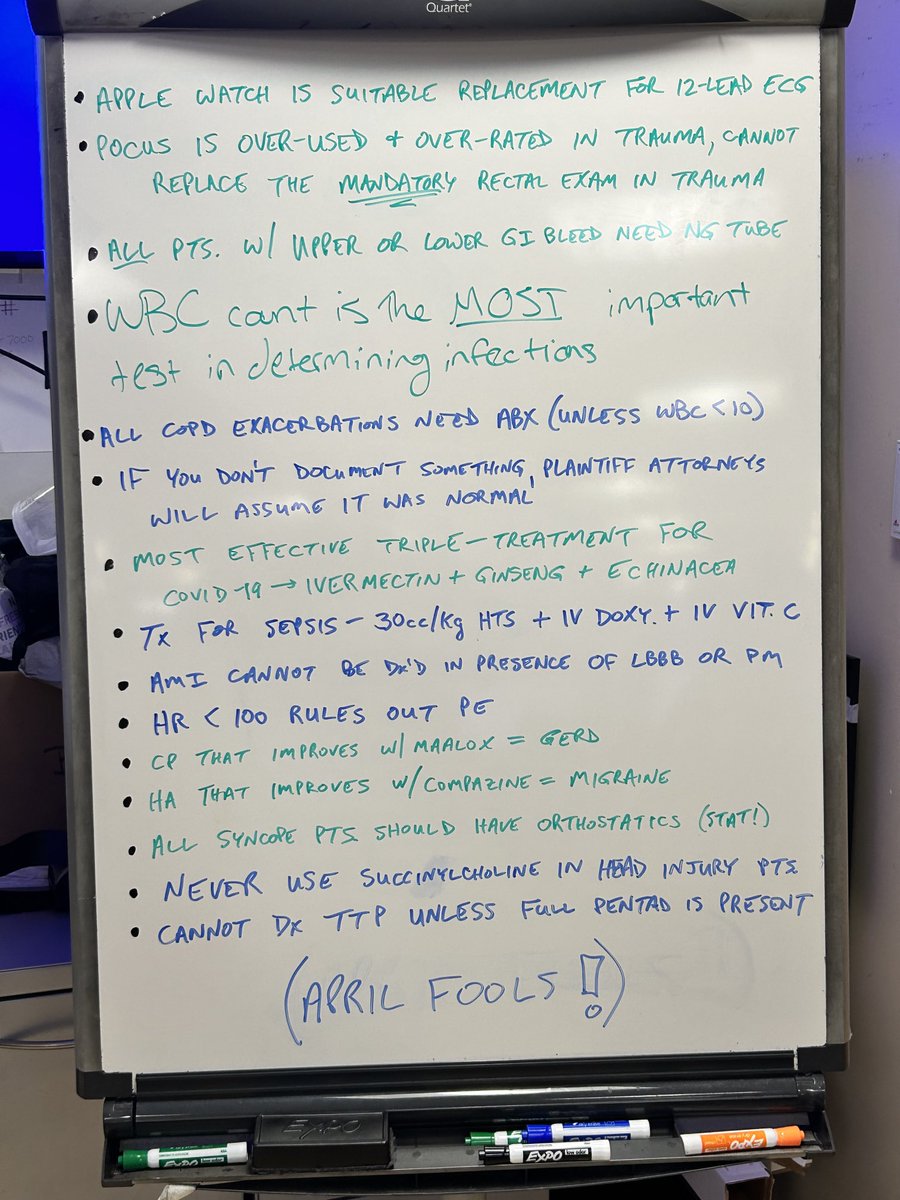 Quartet
• APPLE WATCH IS SUITABLE REPLACEMENT FOR 12-LEAD ECG
• POCUS IS OVER-USED + OVER-RATED IN TRAUMA, CANNOT
REPLACE THE MANDATORY RECTAL EXAM IN TRAUMA
• ALL PTS. W/ UPPER OR LOWER GI BLEED NEED NG TUBE
• WBC count is the MOST important
test in determining infections
• ALL COPD EXACERBATIONS NEED ABX (UNLESS WBC < 10)
• IF YOU DON'T DOCUMENT SOMETHING, PLAINTIFF ATTORNEYS
WILL ASSUME IT WAS NORMAL
• MOST EFFECTIVE TRIPLE-TREATMENT FOR
COVID-19 → IVERMECTIN + GINSENG + ECHINACEA
• Tx FOR SEPSIS - 30cc/Kg HTS + IV DOXY. + IV VIT. C
• AMI CANNOT BE Dx'D IN PRESENCE OF LBBB OR PM
• HR < 100 RULES OUT PE
• CP THAT IMPROVES W/ MAALOX = GERD
• HA THAT IMPROVES W/ COMPAZINE = MIGRAINE
• ALL SYNCOPE PTS SHOULD HAVE ORTHOSTATICS (STAT!)
• NEVER USE SUCCINYLCHOLINE IN HEAD INJURY PTS
• CANNOT Dx TTP UNLESS FULL PENTAD IS PRESENT
(APRIL FOOLS !)
EXPO
EXPO
EXPO
EXPO